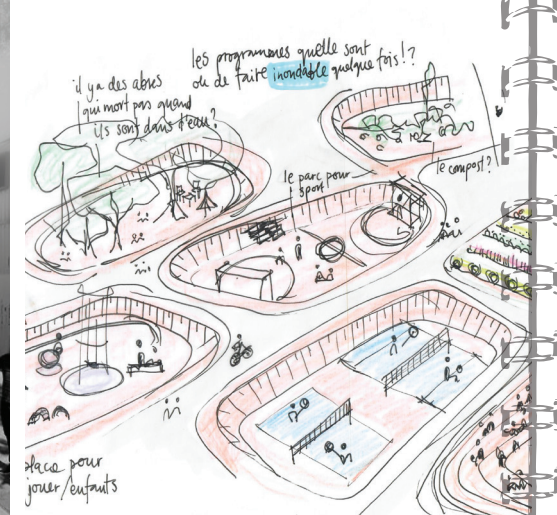 les programmes quelle sont
ou de faite inondable quelque fois!?
il y a des abres
qui mort pas quand
ils sont dans l'eau?
le parc pour
sport
le compost?
place pour
jouer/enfants